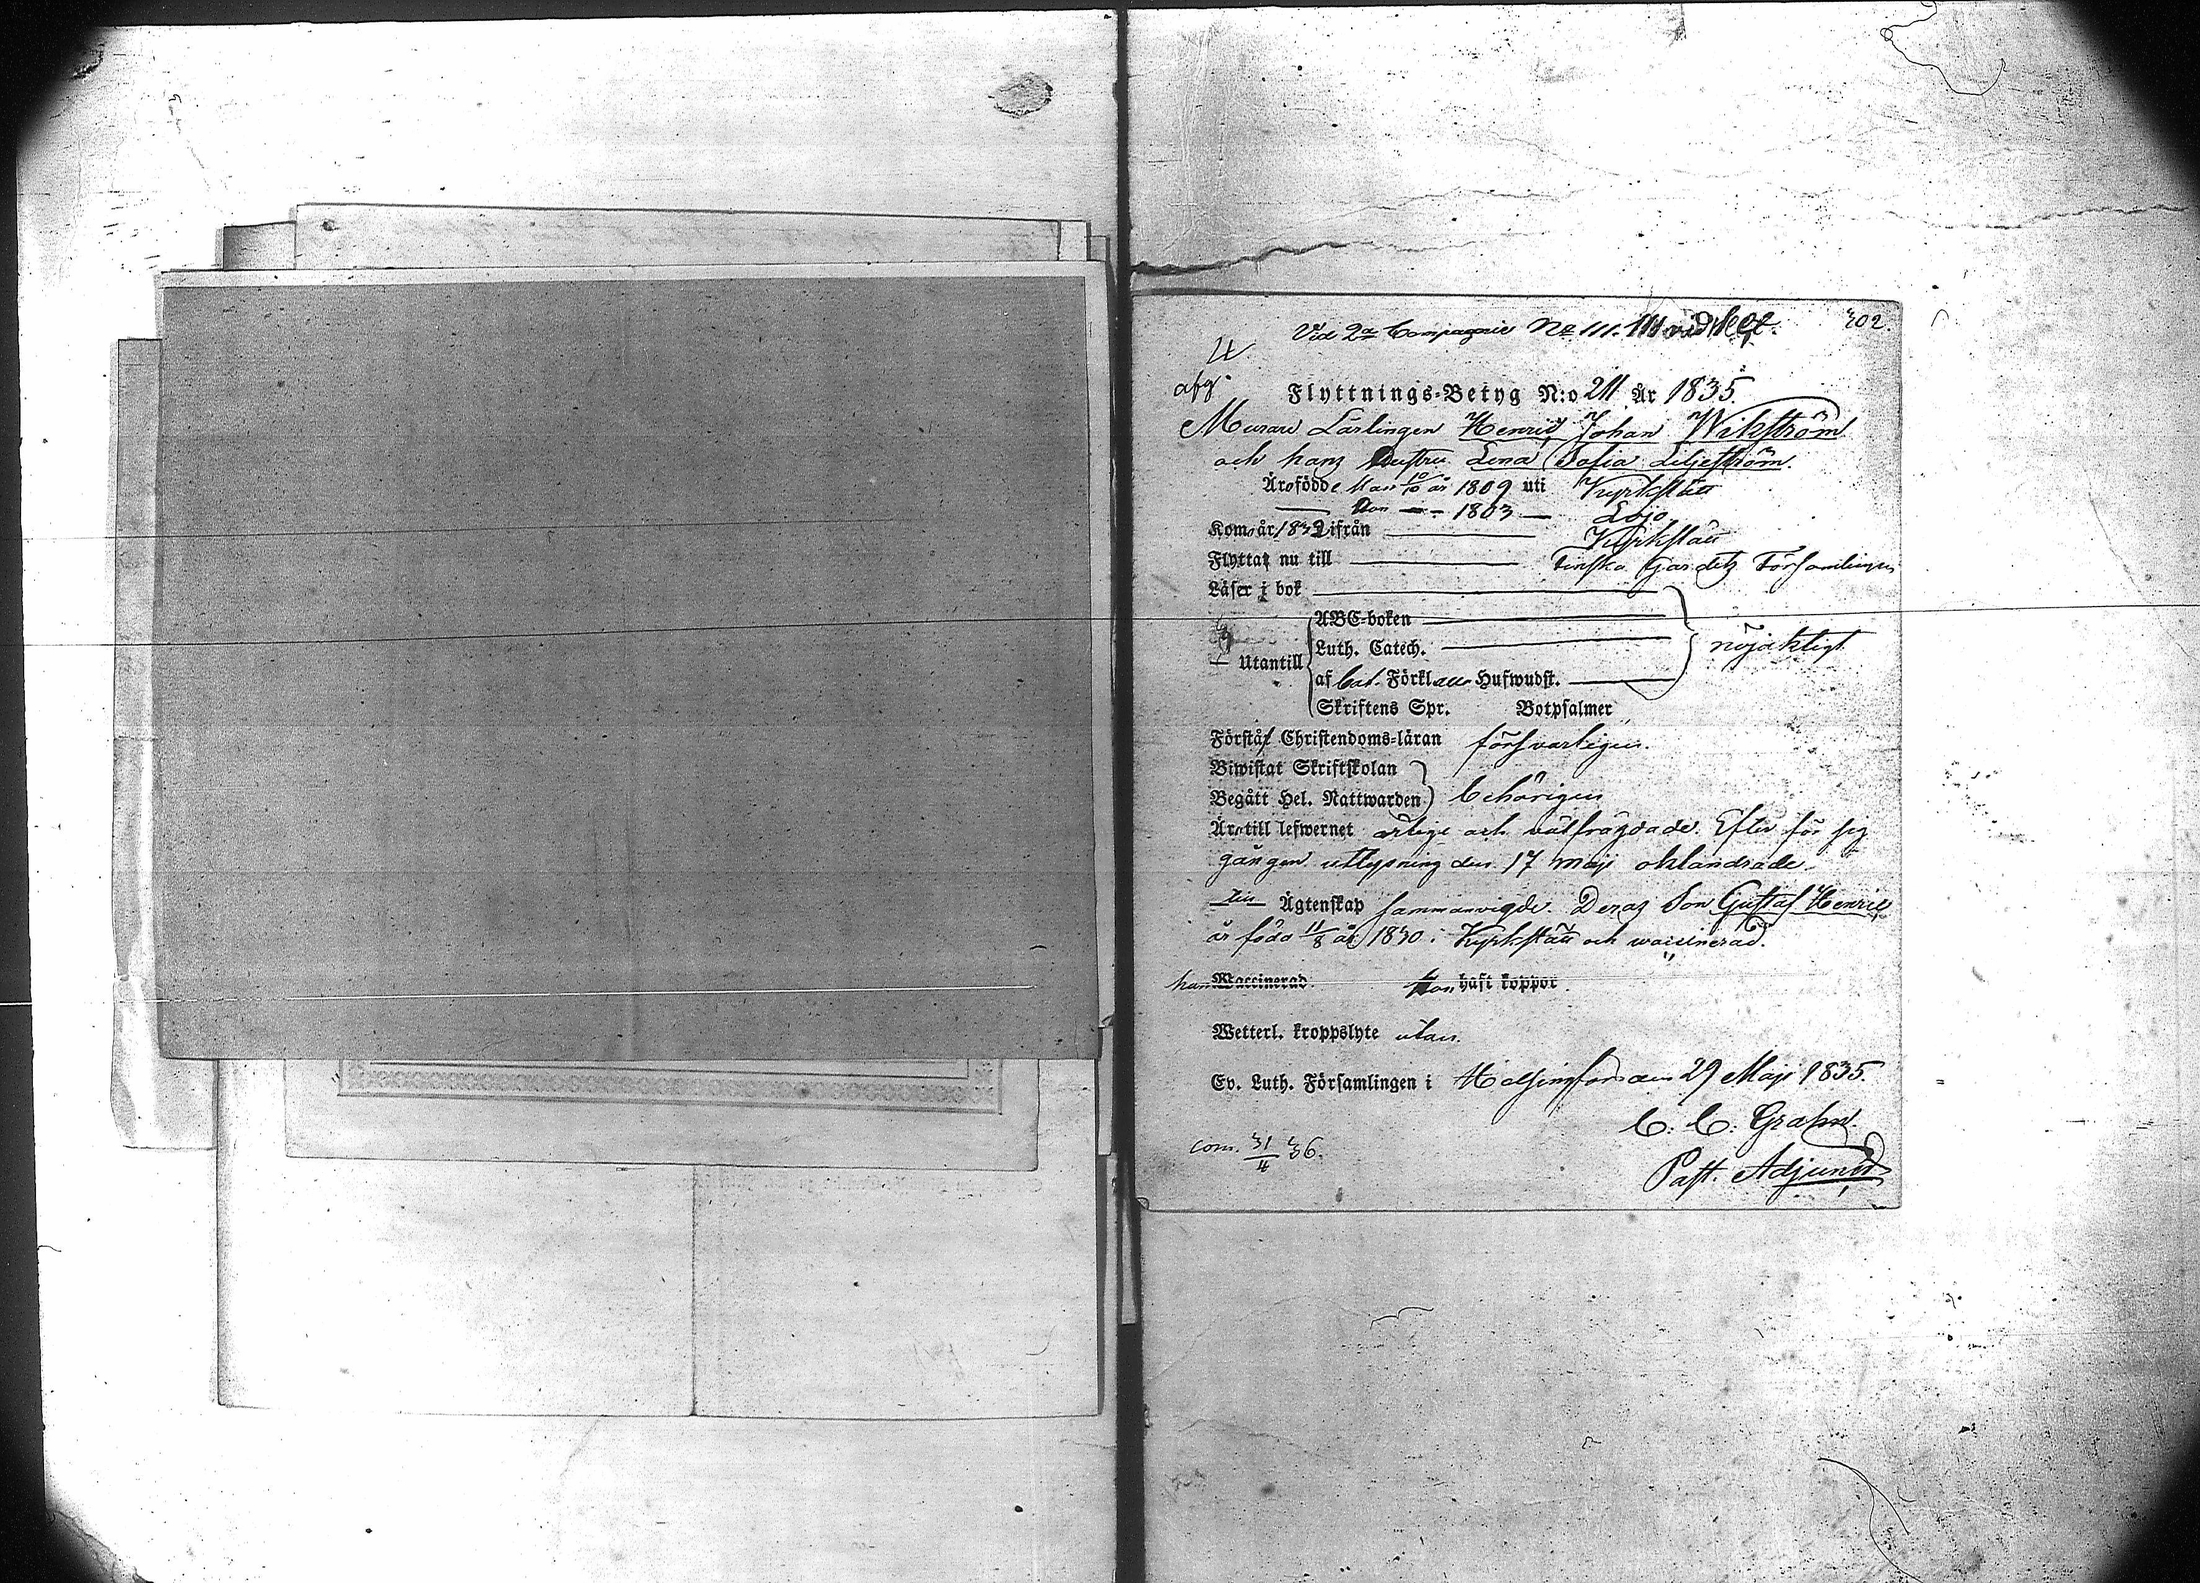 Vid 2a Compagnie No 111.
402.
afg.
Flyttnings-Betyg N:o 211 År 1835.
Murare Lärlingen Henric Johan Wikström
och hans Hustru Lena Sofia Liljeström.
Äro födde Han 10/10 år 1809 uti Kyrkslätt
Hon — 1803 — Lojo.
Kom år 1832 ifrån Kyrkslätt
Flytta nu till Finska Gardets Församlingen
Läser i bok
ABC-boken
Luth. Catech. nöjaktigt
Utantill
af Cat. Förkl Hufwudst.
Skriftens Spr. Botpsalmer
Förstå Christendoms-läran försvarligen.
Biwistat Skriftskolan
Begått Hel. Nattwarden behörigen
Äro till lefwernet ärlige och välfrägdade. Efter för sig
gången utlysning den 17 Maji oklandrade
till Ägtenskap sammanvigde. Deras Son Gustaf Henric
är född 11/8 år 1830 i Kyrkslätt och waccinerad.
han Waccinerad hon haft koppor
Wetterl. kroppslyte utan.
Ev. Luth. Församlingen i Helsingfors den 29 Maji 1835.
C. C. Grahn.
com. 31/4 36.
Past. Adjunct